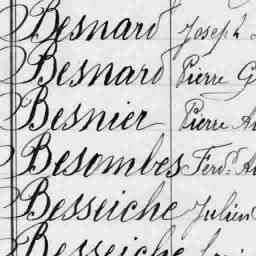 Besnard Joseph
Besnard Pierre
Besnier Pierre
Besombes Ferd.d
Besseiche Julien
Besseiche